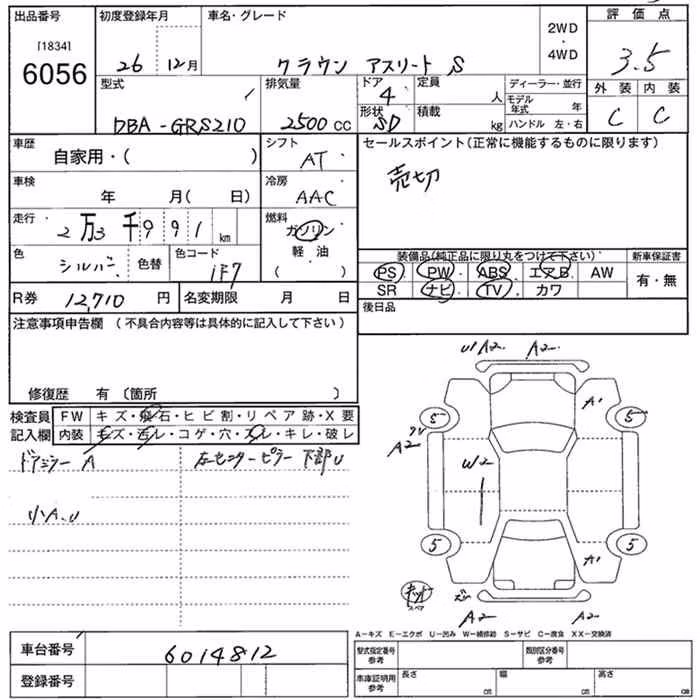 出品番号 初度登録年月 車名・グレード 2WD ・ 4WD 評価点
[1834]
6056
26 12月 クラウン アスリート S 3.5
型式 排気量 ドア 4 定員 人 ディーラー・並行 外装 内装
モデル年式 年
DBA-GRS210 2500 CC 形状 SD 積載 kg ハンドル 左・右 C C
車歴 自家用・( ) シフト AT セールスポイント(正常に機能するものに限ります)
売切
車検 年 月( 日) 冷房 AAC
走行 2万3千991km 燃料 ガソリン
軽油
( )
色 シルバー 色替 色コード 1F7
装備品(純正品に限り丸をつけて下さい) 新車保証書
PS・PW・ABS・エアB・AW 有・無
SR ナビ・TV・カワ
R券 12,710円 名変期限 月 日 後日品
注意事項申告欄 (不具合内容等は具体的に記入して下さい)
修復歴 有 〔箇所 〕
検査員記入欄 FW キズ・飛石・ヒビ割・リペア跡・X要
内装 キズ・汚レ・コゲ・穴・スレ・キレ・破レ
ドアミラー A 左センターピラー 下部U
小A.U
U1A2 A2
A1
5 5
A2
W2
5 5
A1
スペア
A2 A2
A-キズ E-エクボ U-凹み W-補修跡 S-サビ C-腐食 XX-交換済
車台番号 6014812
型式指定番号 参考 類別区分番号 参考
登録番号
車庫証明用 参考 長さ cm 幅 cm 高さ cm